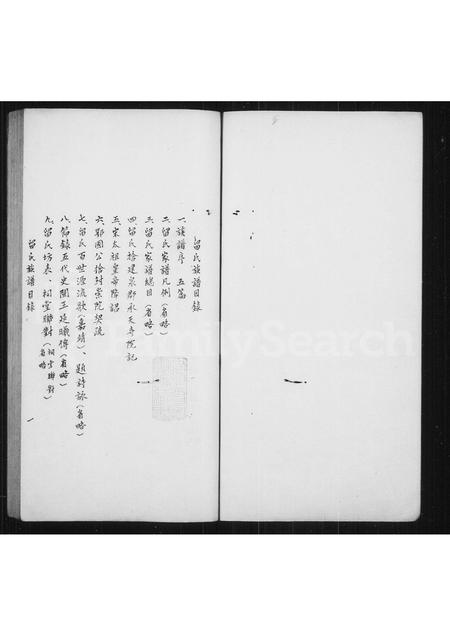 留氏族譜目錄
一、族譜序 五篇
二、留氏家譜凡例(省略)
三、留氏家譜總目(省略)
四、留氏捨建泉郡承天寺院記
五、宋太祖皇帝降詔
六、鄂國公捨封崇院契疏
七、留氏百世源流歌(嘉靖)、題詩詠(省略)
八、節錄五代史閩王延曦傳(省略)
九、留氏坊表、祠堂聯對(祠堂聯對省略)
留氏族譜目錄 一
FamilySearch